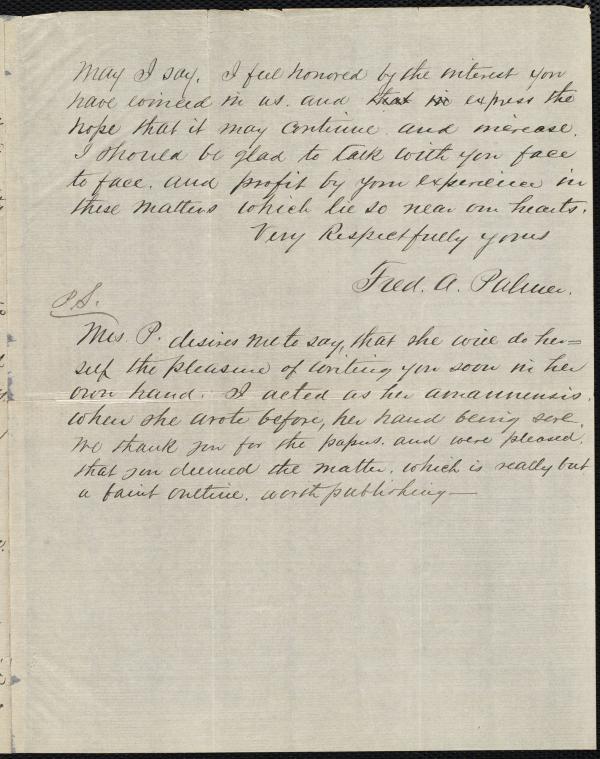 May I say. I feel honored by the interest you
have evinced in us. and that in express the
hope that it may continue. and increase.
I should be glad to talk with you face
to face. and profit by your experience in
these matters which lie so near our hearts.
Very Respectfully yours
Fred. A. Palmer.
P.S.
Mrs. P. desires me to say, that she will do her=
self the pleasure of writing you soon in her
own hand. I acted as her amannensis.
when she wrote before, her hand being sore.
We thank you for the papers. and were pleased.
that you deemed the matter. which is really but
a faint outline. worth publishing—